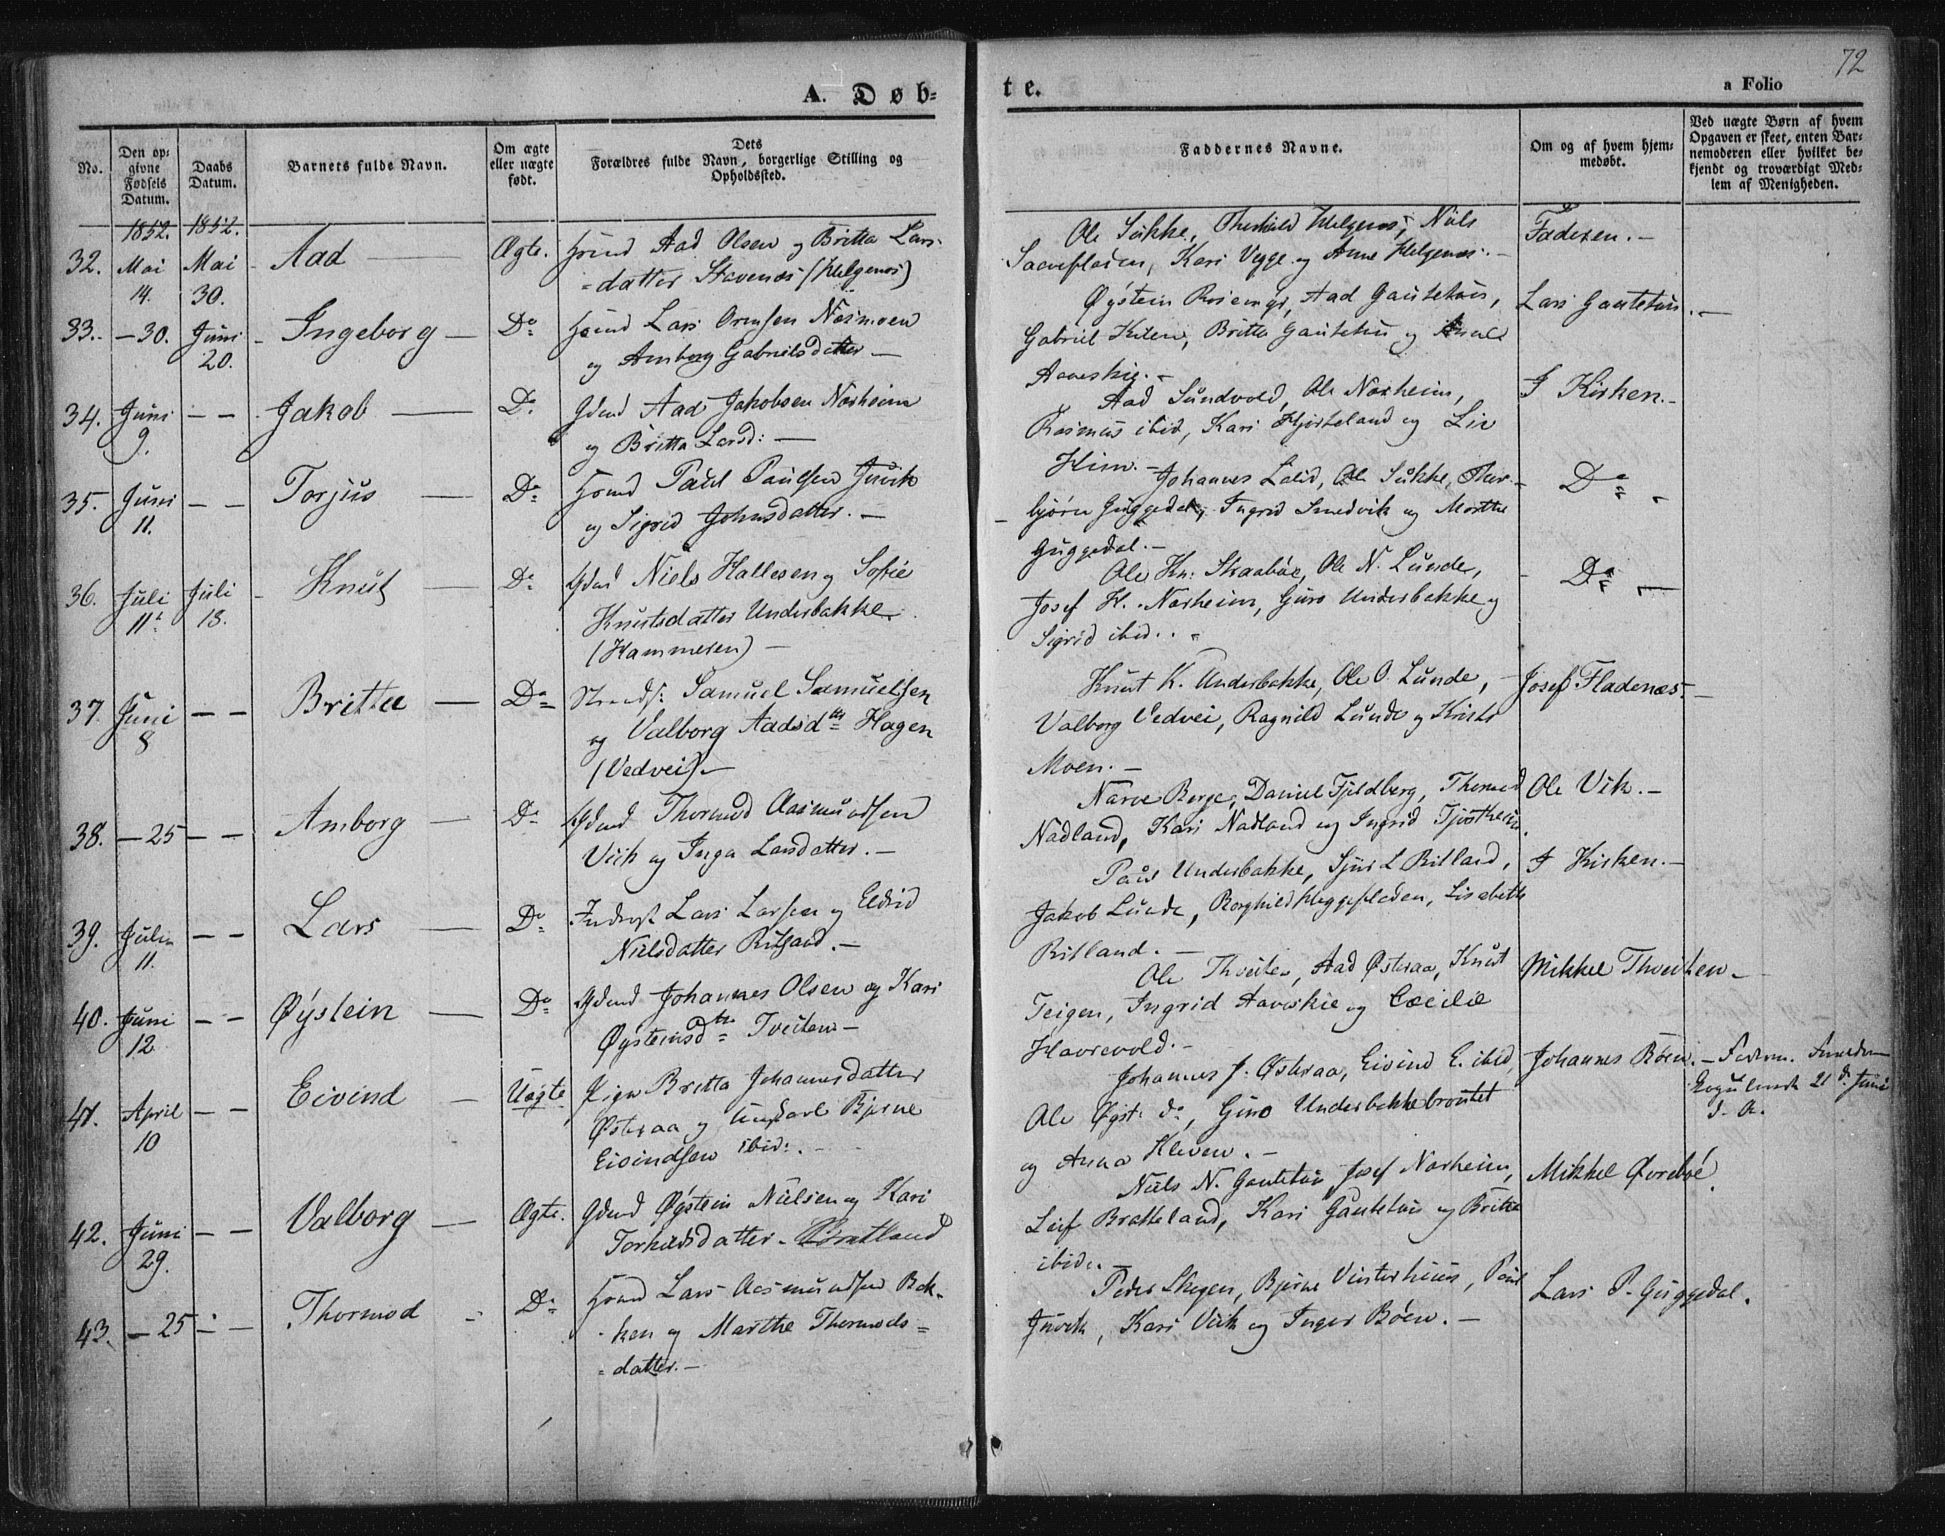 72
A. Døb-
te.
a Folio
No.
Den op-
givne
Fødsels
Datum.
Daabs
Datum.
Barnets fulde Navn.
Om ægte
eller uægte
født.
Dets
Forældres fulde Navn, borgerlige Stilling og
Opholdssted.
Faddernes Navne.
Om og af hvem hjem-
medøbt.
Ved uægte Børn af hvem
Opgaven er skeet, enten Bar-
nemoderen eller hvilket be-
kjendt og troværdigt Med-
lem af Menigheden.
1852. 1852.
32. Mai 14. Mai 30. Aad Ægte. Hsmd Aad Olsen og Britta Lars-
datter Stavenæs (Helgenæs)
Ole Sukke, Helgenæs, Niels
Kari Vegge og Anne Helgenæs.
Faderen.
33. 30. Juni 20. Ingeborg Do Hsmd Lars Ormsen Nosmoen
og Amborg Gabrielsdatter
Øystein Aad Gautetun,
Gabriel Kilen, Britta Gautetun og
Aaveskie.
Lars Gautetun.
34. Juni 9. Jakob Do Gdmd Aad Jakobsen Norheim
og Britta Larsd:
Aad Sundvold, Ole Norheim,
Rasmus ibid, Kari Hjorteland og Liv
Him.
I Kirken.
35. Juni 11. Torjus Do Hsmd Paul Paulsen Juvik
og Sigrid Johnsdatter.
Johannes Ole Sukke, Thor-
bjørn Guggedal, Ingrid Smedvik og Marthe
Guggedal.
Do
36. Juli 11. Juli 18. Knut Do Gdmd Niels Hallesen og Sofie
Knutsdatter Underbakke
(Hammeren)
Ole Kn: Straabøe, Ole N. Lunde,
Josef H. Norheim, Guro Underbakke og
Sigrid ibid.
Do
37. Juni 8 Britta Do Samuel Samuelsen
og Valborg Aadsdtr Hagen
(Vedvei).
Knut K. Underbakke, Ole O. Lunde,
Valborg Vedvei, Ragnild Lunde og
Moen.
Josef Fladenæs.
38. 25 Amborg Do Gdmd Thormod Aasmundsen
Viik og Inga Larsdatter.
Narve Berge, Daniel Fjeldberg, Thormod
Nadland, Kari Nadland og Ingrid Tjostheim.
Ole Vik.
39. Juli 11. Lars Do Inderst Lars Larsen og Eldrid
Nielsdatter Ritland.
Paul Underbakke, Sjur L Ritland,
Jakob Lunde, Borghild Lisabeth
Ritland.
I Kirken.
40. Juni 12 Øystein Do Gdmd Johannes Olsen og Kari
Øysteinsdtr Tveiten
Ole Thveiten, Aad Østeraa, Knut
Teigen, Ingrid Aaveskie og Cæcilie
Havrevold.
Mikkel Thveiten
41. April 10 Eivind Uægte Pige Britta Johannesdatter
Østeraa og Ungkarl Bjørne
Eivindsen ibid:
Johannes J. Østeraa, Eivind E. ibid,
Ole Øyst. do, Guro Underbakkebrautet
og Anna Kleven.
Johannes Bøen.
21 d. Juni
d. A.
42. Juni 29. Valborg Ægte. Gdmd Øystein Nielsen og Kari
Torkildsdatter Bratland
Niels N. Gautetun Josef Norheim,
Leif Bratteland, Kari Gautetun og Britta
ibid.
Mikkel Øvrebøe.
43. 25 Thormod Do Hsmd Lars Aasmundsen Bak-
ken og Marthe Thormods-
datter.
Peder Skogen, Bjørne Vinterhuus, Paul
Juvik, Kari Viik og Inger Bøen.
Lars P. Guggedal.